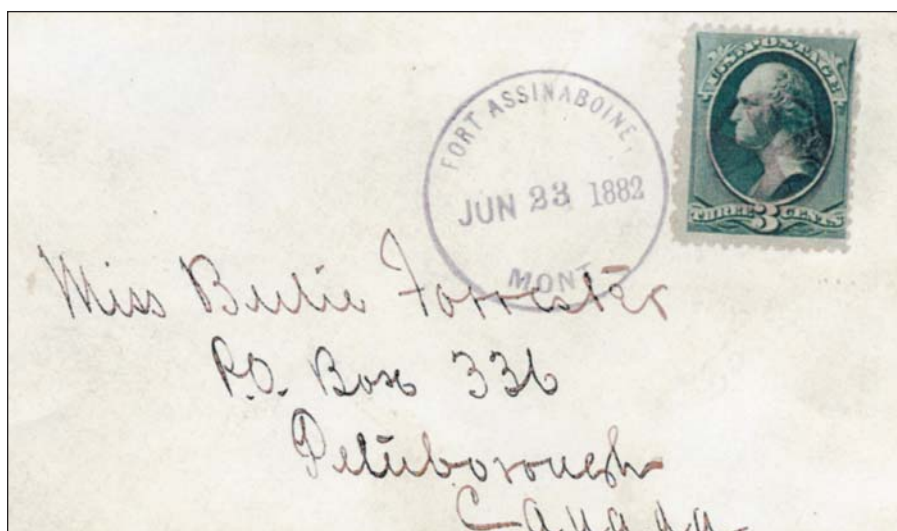 U.S. POSTAGE
THREE 3 CENTS
FORT ASSINABOINE,
JUN 23 1882
MONT.
Miss Bertie Forrester
P.O. Box 336
Peterborough
Canada